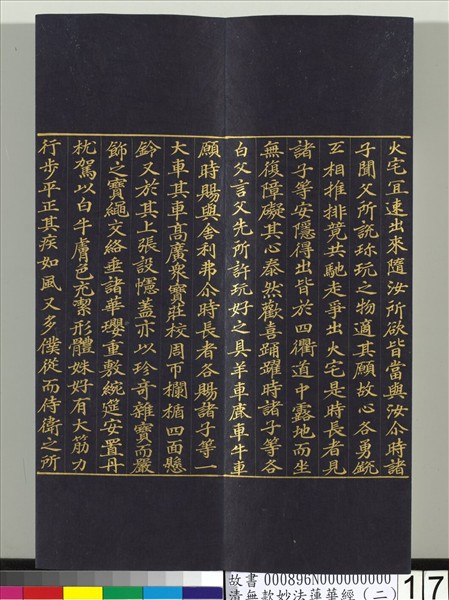 火宅宜速出來隨汝所欲皆當與汝尒時諸
子聞父所說珎玩之物適其願故心各勇銳
互相推排競共馳走爭出火宅是時長者見
諸子等安隱得出皆於四衢道中露地而坐
無復障礙其心泰然歡喜踊躍時諸子等各
白父言父先所許玩好之具羊車鹿車牛車
願時賜與舍利弗尒時長者各賜諸子等一
大車其車高廣衆寶莊校周帀欄楯四面懸
鈴又於其上張設幰蓋亦以珍奇雜寶而嚴
飾之寶繩交絡垂諸華瓔重敷綩綖安置丹
枕駕以白牛膚色充潔形體姝好有大筋力
行步平正其疾如風又多僕從而侍衛之所
故書 000896N000000000
清無款妙法蓮華經(二)
17